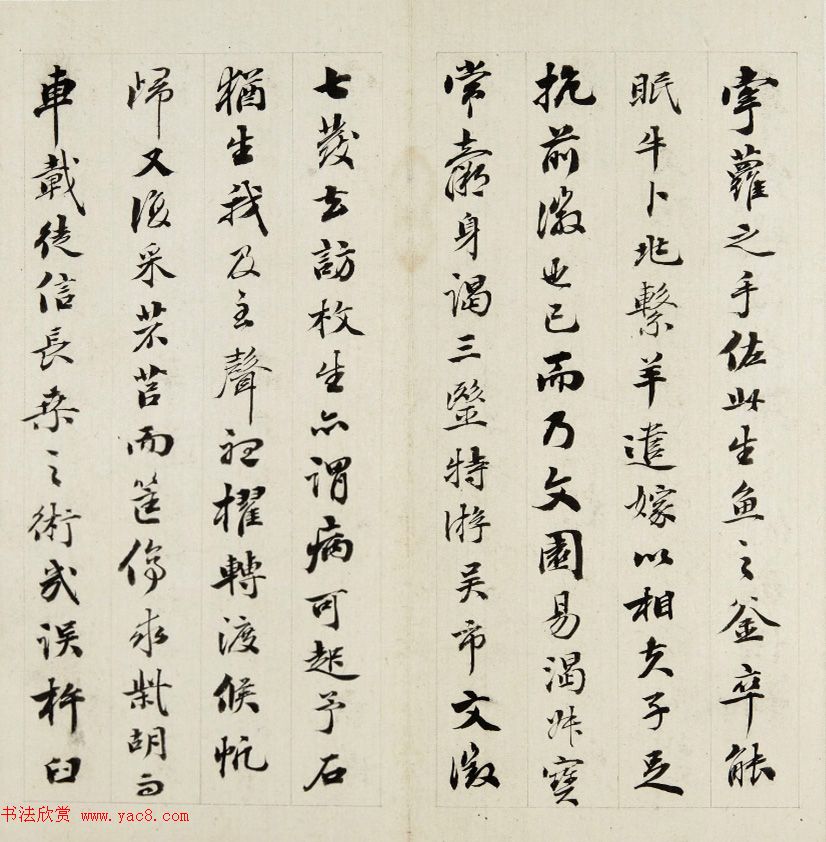 掌蘿之手佐此生魚之釜卒能
眠牛卜兆繫羊遣嫁以相夫子足
抗前徽也已而乃文園易渴姊寶
常身謁三醫特游吳市文徵
七發去訪枚生亦謂病可起予石
猶生我及至聲初櫂轉渡候帆
歸又復采芣苢而筐傷求胡
車載徒信長桑之術或誤杵臼
书法欣赏 www.yac8.com